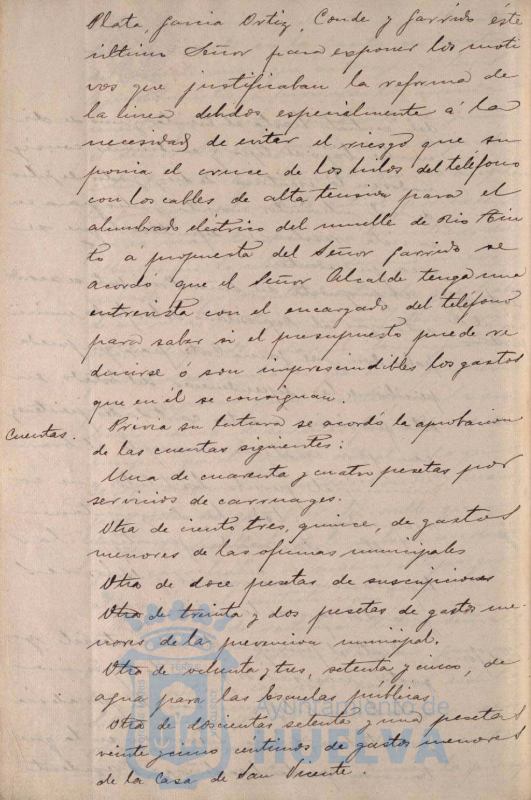 Plata, Garcia Ortiz, Conde y Garrido éste
último Señor para exponer los moti
vos que justificaban la reforma de
la linea debidos especialmente á la
necesidad de evitar el riesgo que su
ponia el cruce de los hilos del teléfono
con los cables de alta tension para el
alumbrado eléctrico del muelle de Rio Tin
to á propuesta del Señor Garrido se
acordó que el Señor Alcalde tenga una
entrevista con el encargado del teléfono
para saber si el presupuesto puede re
ducirse ó son imprescindibles los gastos
que en él se consignan.
Cuentas. Prévia su lectura se acordó la aprobacion
de las cuentas siguientes:
Una de cuarenta y cuatro pesetas por
servicios de carruages.
Otra de ciento tres, quince, de gastos
menores de las oficinas municipales
Otra de doce pesetas de suscripciones
Otra de treinta y dos pesetas de gastos me-
nores de la prevencion municipal.
Otra de ochenta y tres, setenta y cinco, de
agua para las Escuelas públicas
Otra de doscientas setenta y una pesetas
veinte y cinco céntimos de gastos menores
de la Casa de San Vicente.
Ayuntamiento de
HUELVA